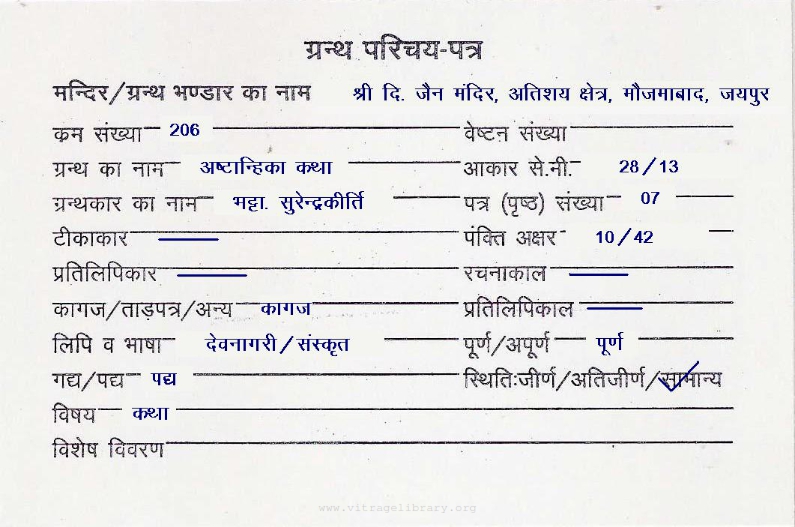 ग्रन्थ परिचय-पत्र
मन्दिर/ग्रन्थ भण्डार का नाम श्री दि. जैन मंदिर, अतिशय क्षेत्र, मौजमाबाद, जयपुर
कम संख्या 206 वेष्टन संख्या
ग्रन्थ का नाम अष्टान्हिका कथा आकार से.मी. 28/13
ग्रन्थकार का नाम भट्टा. सुरेन्द्रकीर्ति पत्र (पृष्ठ) संख्या 07
टीकाकार — पंक्ति अक्षर 10/42
प्रतिलिपिकार — रचनाकाल —
कागज/ताड़पत्र/अन्य कागज प्रतिलिपिकाल —
लिपि व भाषा देवनागरी/संस्कृत पूर्ण/अपूर्ण पूर्ण
गद्य/पद्य पद्य स्थितिःजीर्ण/अतिजीर्ण/सामान्य
विषय कथा
विशेष विवरण
www.vitragelibrary.org